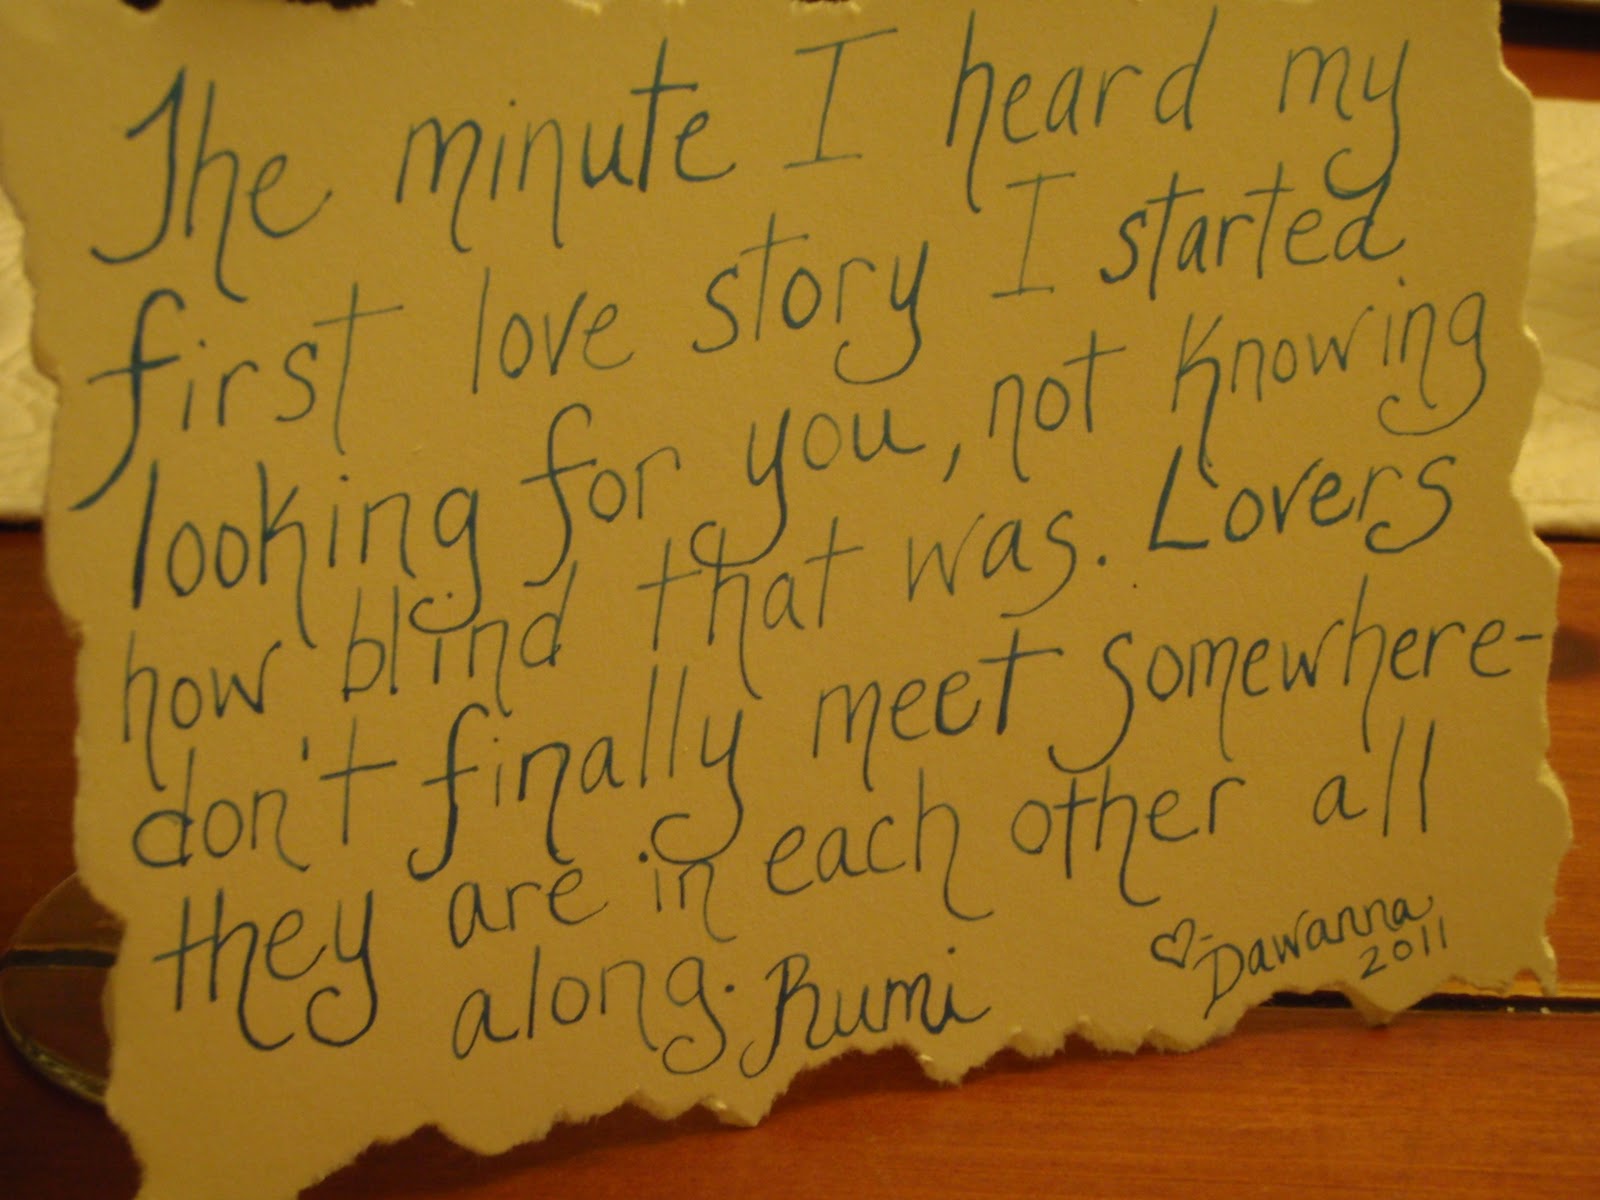 The minute I heard my
first love story I started
looking for you, not knowing
how blind that was. Lovers
don't finally meet somewhere-
they are in each other all
along. Rumi
♡-Dawanna
2011